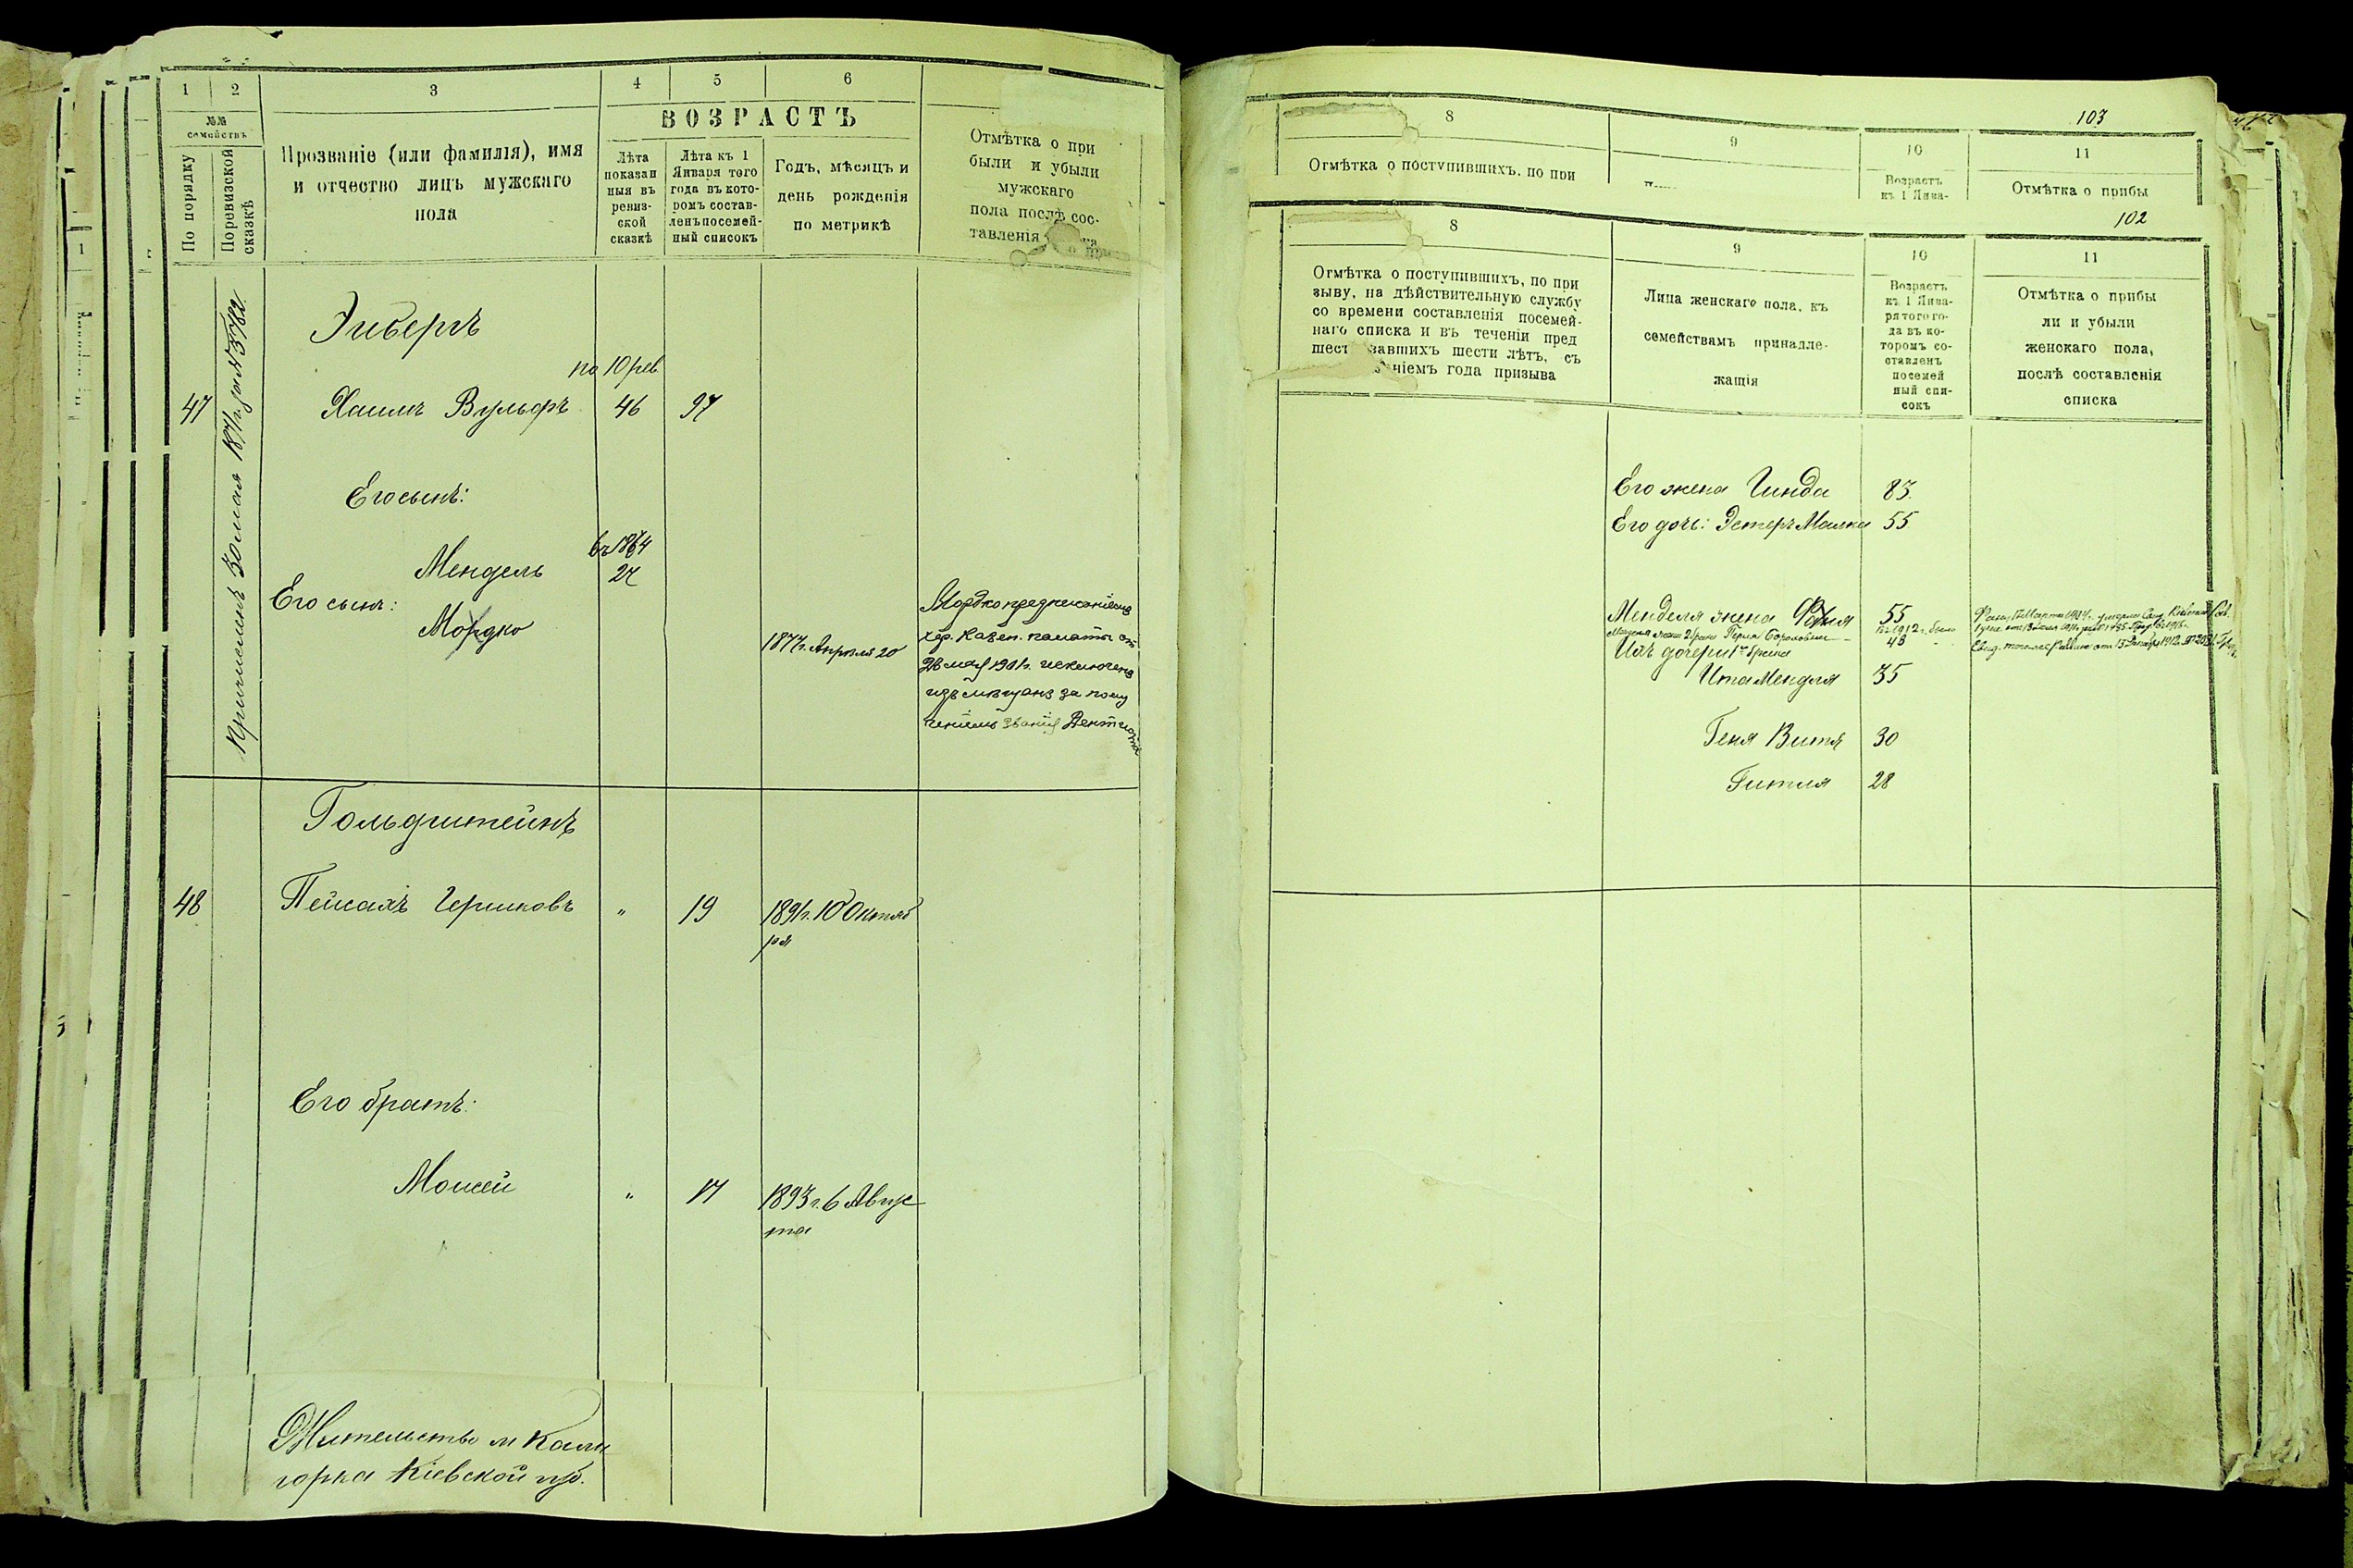 1 2 3 4 5 6
№№ семействъ
По порядку
Поревизской сказкѣ
Прозваніе (или фамилія), имя
и отчество лицъ мужскаго
пола
ВОЗРАСТЪ
Лѣта
показан
ныя въ
ревиз-
ской
сказкѣ
Лѣта къ 1
Января того
года въ кото-
ромъ состав-
ленъ посемей-
ный списокъ
Годъ, мѣсяцъ и
день рожденія
по метрикѣ
Отмѣтка о при
были и убыли
мужскаго
пола послѣ сос-
тавленія
30 мая 187
Эпберъ
по 10 рев
47 Хаимъ Вульфъ 46 97
Его сынъ:
въ 1864
Мендель 27
Его сынъ:
Мордко 1877г. Апрѣля 20
Мордко
хер. Казен. палаты от
28 мая 1901г. исключенъ
изъ мѣщанъ за полу
ченіемъ званія Дентиста
Гольдштейнъ
48 Пейсахъ Гершковъ " 19 1891г. 10 Октяб
ря
Его братъ:
Моисей " 17 1893г. 6 Авгус
та
Жительство м Калн
горка Кіевской губ.
103
8 9 10 11
Отмѣтка о поступившихъ, по при
Возрастъ
къ 1 Янва-
Отмѣтка о прибы
102
8 9 10 11
Отмѣтка о поступившихъ, по при
зыву, на дѣйствительную службу
со времени составленія посемей-
наго списка и въ теченіи пред
шест вавшихъ шести лѣтъ, съ
ніемъ года призыва
Лица женскаго пола, къ
семействамъ принадле-
жащія
Возрастъ
къ 1 Янва-
ря того го-
да въ ко-
торомъ со-
ставленъ
посемей
ный спи-
сокъ
Отмѣтка о прибы
ли и убыли
женскаго пола,
послѣ составленія
списка
Его жена Гинда 83
Его дочь: Эстеръ Малка 55
Менделя жена Фаня 55
Менделя жена 2 брака Перля
48
Ихъ дочери 1го брака
Ита Мендля 35
Геня Витя 30
Гитля 28